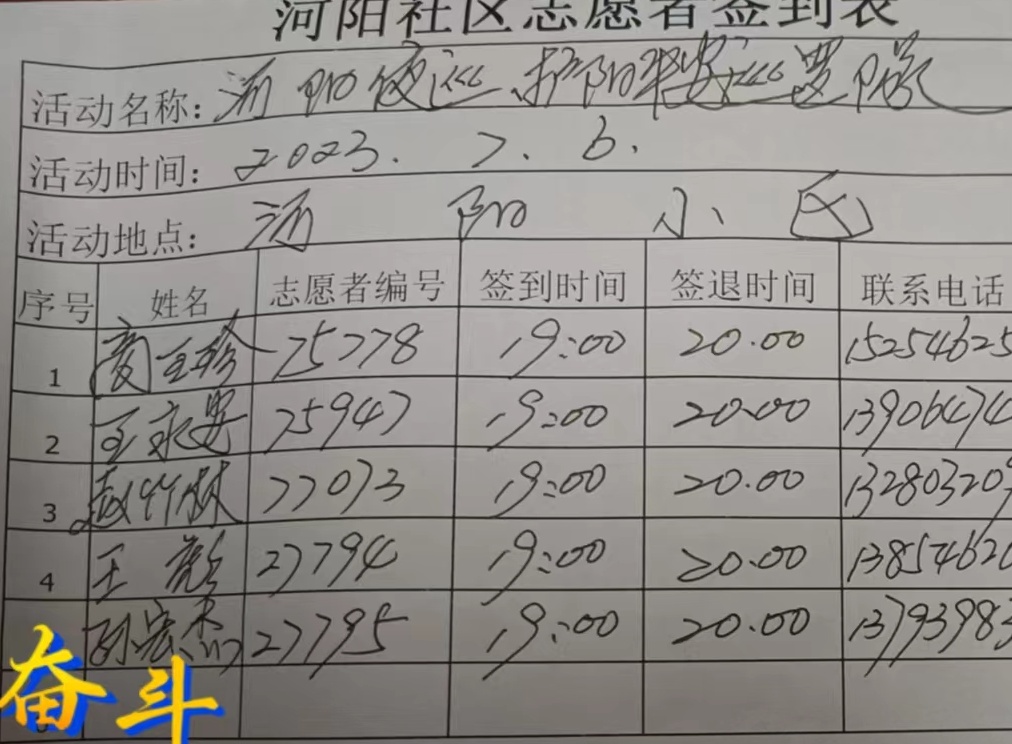 河阳社区志愿者签到表
活动名称: 河阳夜巡
活动时间: 2023. 7. 6.
活动地点: 河阳小区
序号 姓名 志愿者编号 签到时间 签退时间 联系电话
1 75778 19:00 20.00 15254625
2 王永安 75947 19:00 20.00 13906474
3 赵竹林 77073 19:00 20.00 13280320
4 王彪 27794 19:00 20.00 1385462
孙宏杰 27795 19:00 20.00 13793983
奋斗